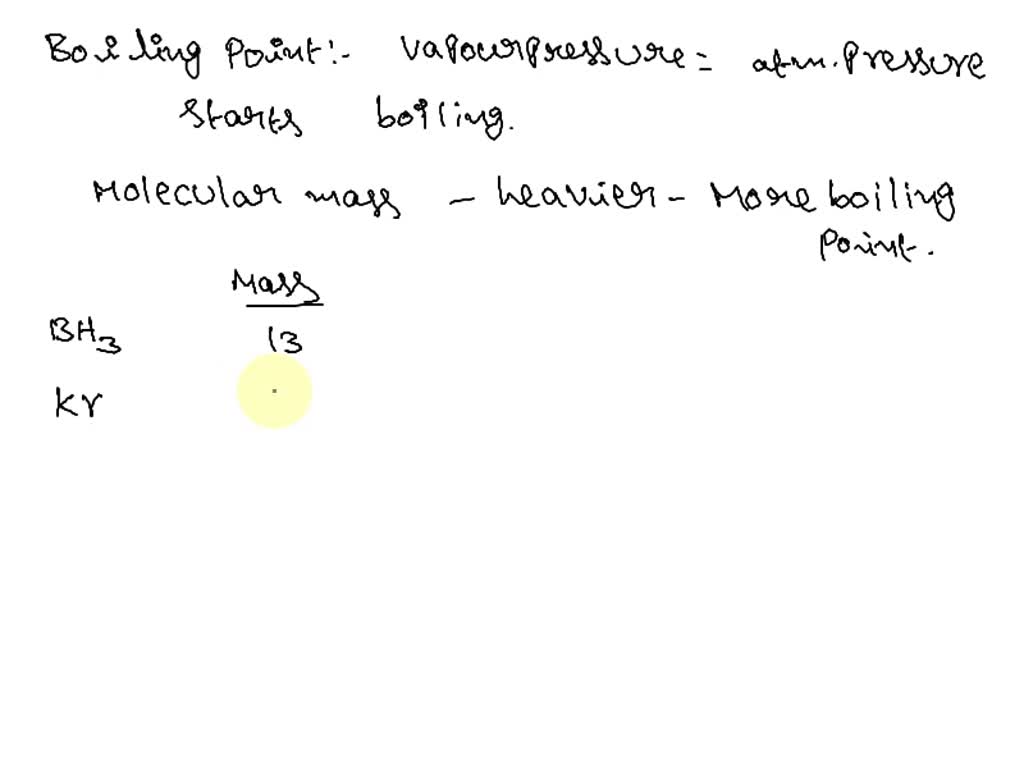 Boiling Point:- Vapourpressure = atm. Pressure
starts boiling.
Molecular mass - heavier - More boiling
Point.
Mass
BH3 13
Kr